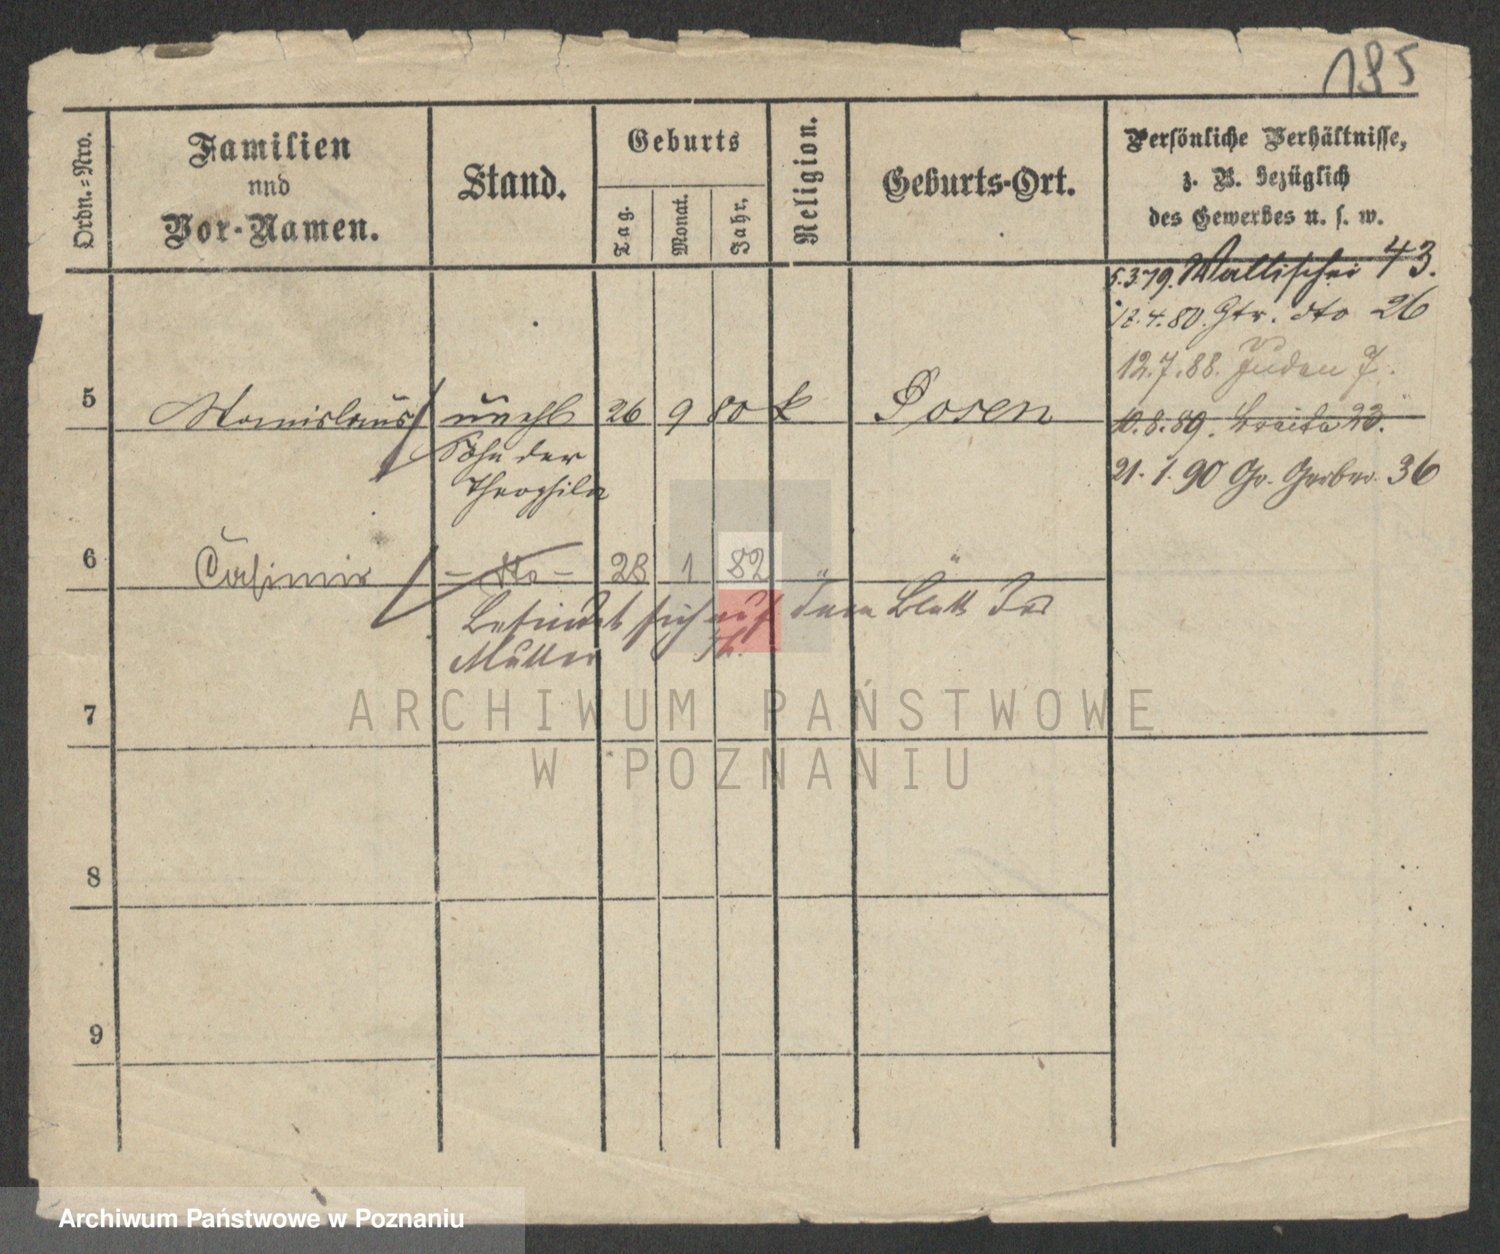 195
Ordn.=Nro.
Familien
und
Vor-Namen.
Stand.
Geburts
Tag.
Monat.
Jahr.
Religion.
Geburts-Ort.
Persönliche Verhältnisse,
z. B. bezüglich
des Gewerbes u. s. w.
5.3.79. Wallischei 43.
12.4.80. Gtr. dto 26
12.7.88. Juden 7.
5 Stanislaus unehl 26 9 80 k Posen
10.8.89. Breite 23.
Sohn der
Theophila
21.1.90 Gr. Gerber 36
6 Casimir – dto – 28 1 82 " "
befindet sich auf dem Blatt der
Mutter
7
8
9
ARCHIWUM PAŃSTWOWE
W POZNANIU
Archiwum Państwowe w Poznaniu